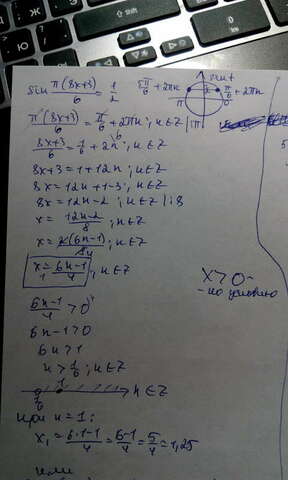 sin π(8x+3)/6 = 1/2
5π/6 + 2πn
sin t
π
0
π/6 + 2πn
π(8x+3)/6 = π/6 + 2πn; n∈Z | : π
8x+3/6 = 1/6 + 2n; n∈Z
8x+3 = 1+12n; n∈Z
8x = 12n+1-3; n∈Z
8x = 12n-2; n∈Z | : 8
x = 12n-2/8; n∈Z
x = 2(6n-1)/84; n∈Z
x₁ = 6n-1/4; n∈Z
x>0 -
- по условию
6n-1/4 > 0
6n-1>0
6n>1
n > 1/6; n∈Z
1/6
1
n∈Z
при n=1:
x₁ = 6·1-1/4 = 6-1/4 = 5/4 = 1,25
или